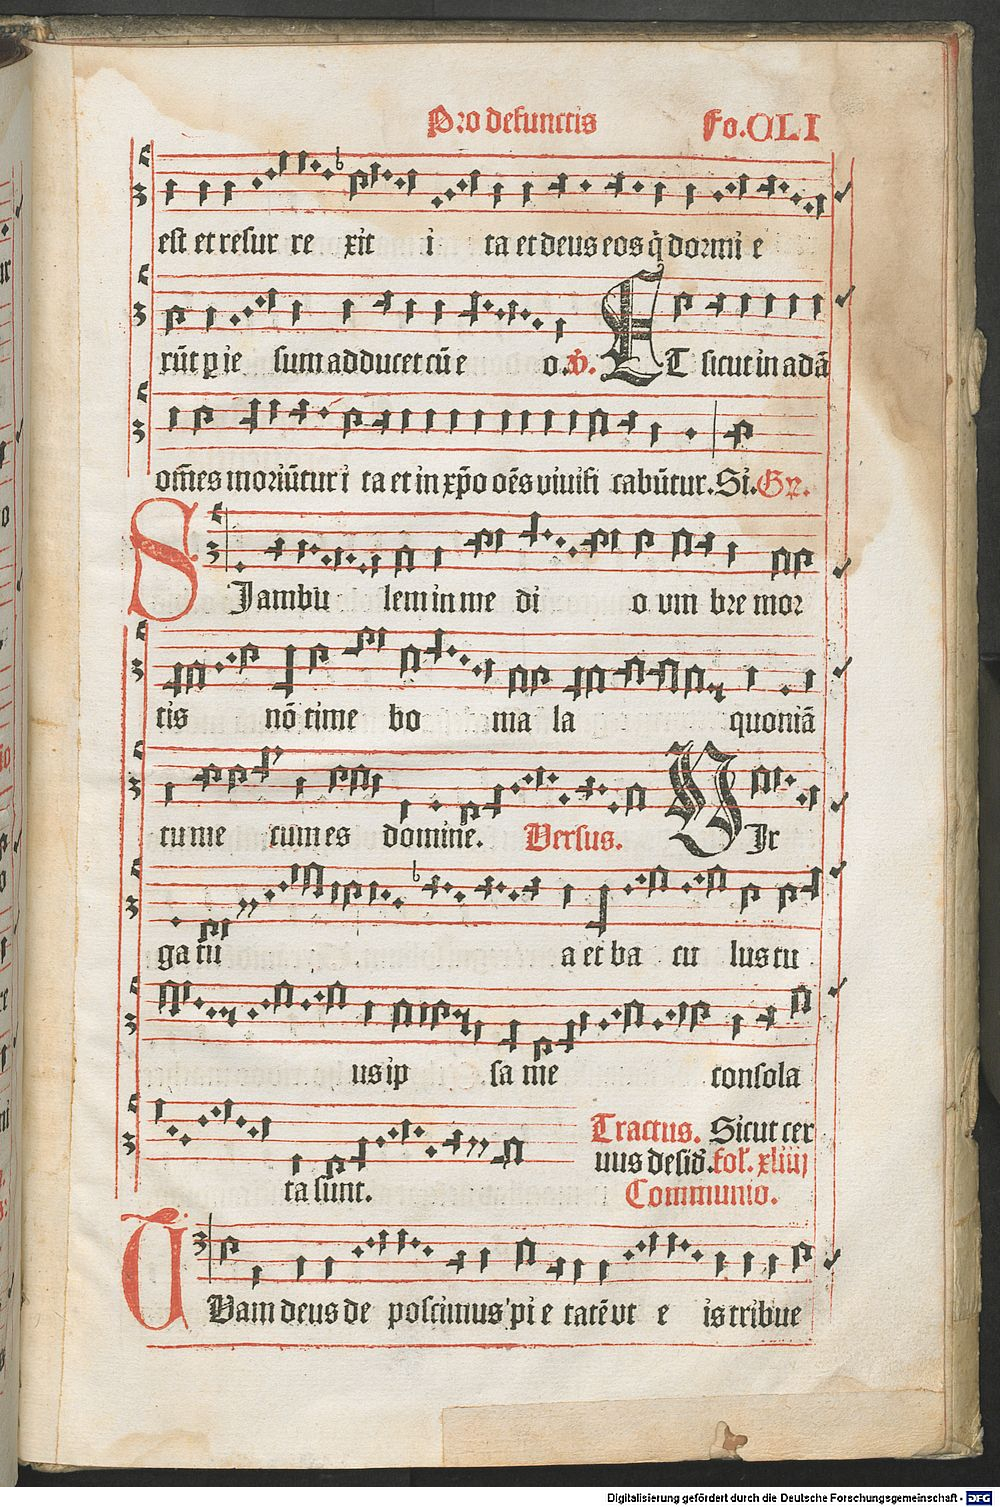 Pro defunctis Fo. CLI
est et resur re xit i ta et deus eos q̃ dormi e
rũt ꝑ ie sum adducet cũ e o. ℣. ET sicut in adã
om̃es moriũtur i ta et in xp̃o oẽs viuifi cabũtur. Si. Gr̃.
SI ambu lem in me di o vm bre mor
tis nõ time bo ma la quoniã
tu me cum es domine. Versus. VIr
ga tu a et ba cu lus tu
us ip sa me consola
ta sũnt. Tractus. Sicut cer
uus desid̃. fol. xliiij
Communio.
TVam deus de poscimus pi e tatẽ vt e is tribue
Digitalisierung gefördert durch die Deutsche Forschungsgemeinschaft - DFG